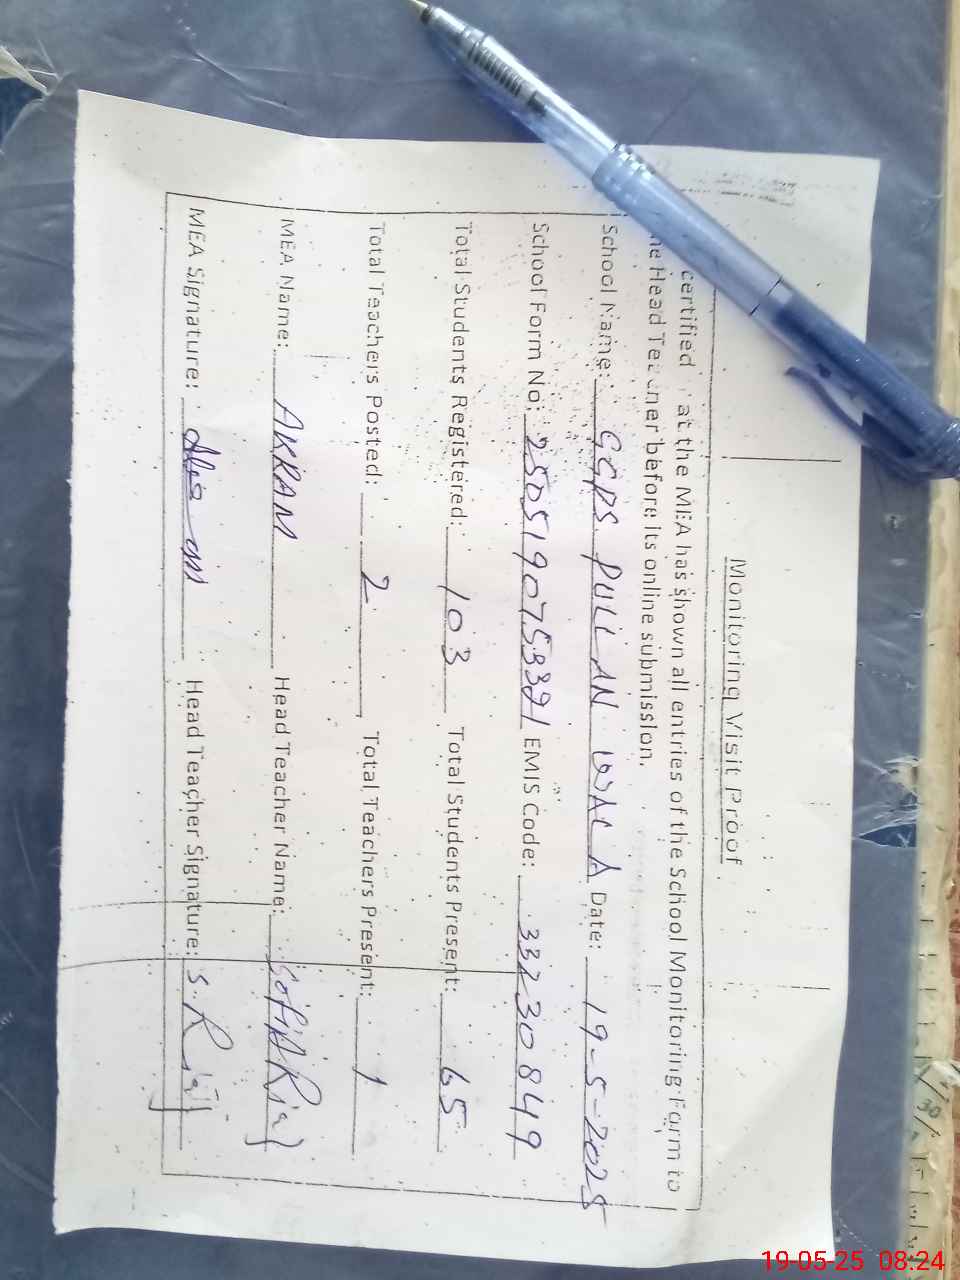 Monitoring Visit Proof
certified at the MEA has shown all entries of the School Monitoring Form to
Head Teacher before its online submission.
School Name: GGPS PULLAN WALA Date: 19-5-2025
School Form No: 25051907533 21 EMIS Code: 33230849
Total Students Registered: 103 Total Students Present: 65
Total Teachers Posted: 2 Total Teachers Present: 1
MEA Name: AKRAM Head Teacher Name:
MEA Signature: Head Teacher Signature: S. Riaz
30
19-05-25 08:24